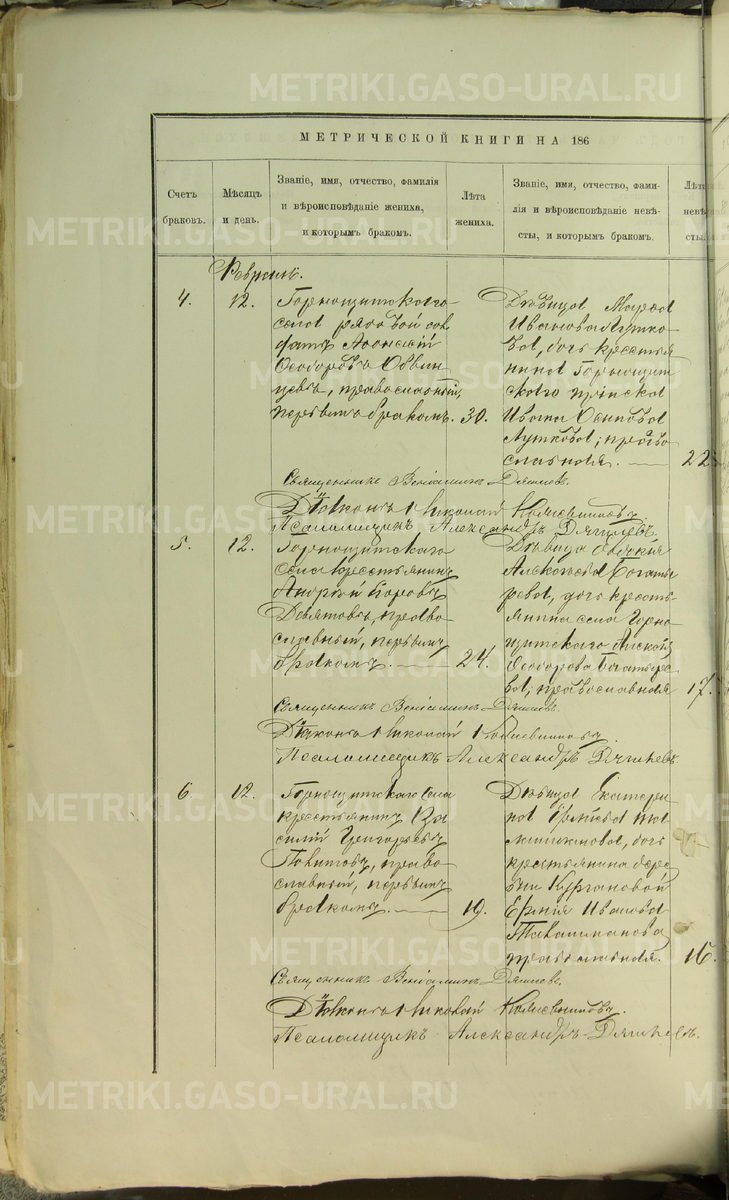 METRIKI.GASO-URAL.RU
МЕТРИЧЕСКОЙ КНИГИ НА 186
Счетъ браковъ.
Мѣсяцъ и день.
Званіе, имя, отчество, фамилія
и вѣроисповѣданіе жениха,
и которымъ бракомъ.
Лѣта жениха.
Званіе, имя, отчество, фами-
лія и вѣроисповѣданіе невѣ-
сты, и которымъ бракомъ.
Лѣта невѣсты
Февраль.
4.
12.
Горнощитскаго
села рядовой сол
датъ
Ѳеодоровъ Обвин
цевъ, православный,
первымъ бракомъ.
30.
Дѣвица Марѳа
Иванова Лутко-
ва, дочь крестья
нина Горнощит
скаго пріиска
Ивана Осипова
Луткова, право
славная.
22
Священникъ Веніаминъ
Діаконъ Николай
Псаломщикъ Александръ Дягилевъ.
5.
12.
Горнощитскаго
села крестьянинъ
Андрей
Девятовъ, право
славный, первымъ
бракомъ.
24.
Дѣвица
Алексѣева Богаты
рева, дочь кресть
янина села Горно
щитскаго Алексѣя
Ѳеодорова Богатыре
ва, православная
17.
Священникъ Веніаминъ
Діаконъ Николай
Псаломщикъ Александръ Дягилевъ.
6
12.
Горнощитскаго села
крестьянинъ Ва
силій Григорьевъ
православный, первымъ
бракомъ.
19.
Дѣвица Екатери
на
дочь
крестьянина дере
вни Кургановой
Ермія Иванова
православная.
16.
Священникъ Веніаминъ
Діаконъ Николай
Псаломщикъ Александръ Дягилевъ.